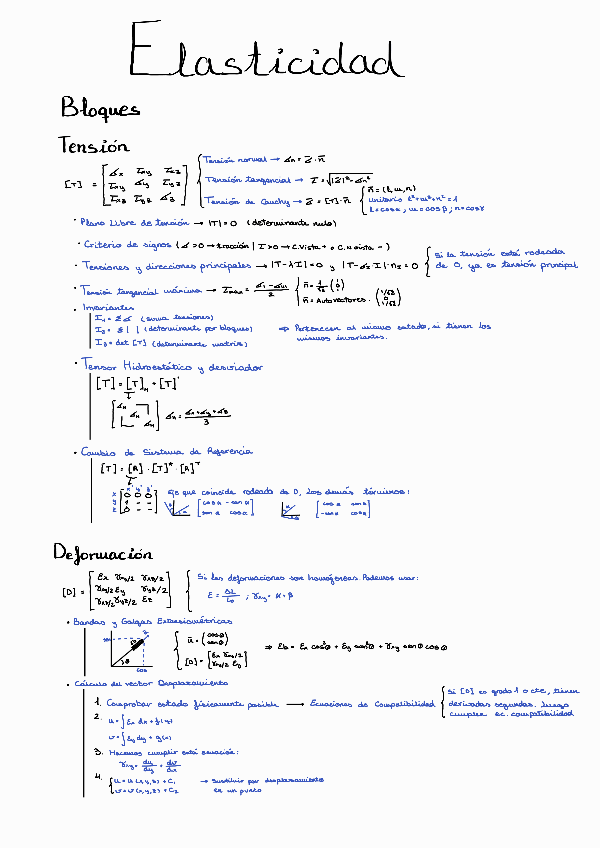 Elasticidad
Bloques
Tensión
[T] = [σx τxy τxz
τxy σy τyz
τxz τyz σz]
Tensión normal → σn = Z · n̄
Tensión tangencial → τ = √|Z|² - σn²
Tensión de Cauchy → Z = [T] · n̄
n̄ = (l, m, n)
unitario l²+m²+n² = 1
l = cos α, m = cos β, n = cos γ
· Plano Libre de tensión → |T| = 0 (determinante nulo)
· Criterio de signos (σ > 0 → tracción | τ > 0 →
· Tensiones y direcciones principales → |T - λI| = 0 y
Si la tensión está rodeada
de 0, ya es tensión principal
· Tensión tangencial máxima → τmax =
n̄ = Autovectores ·
· Invariantes
I1 = Σσ (suma tensiones)
I2 = Σ| | (determinante por bloques)
I3 = det [T] (determinante matriz)
⇒ Pertenecen al mismo estado, si tienen los
mismos invariantes.
· Tensor Hidroestático y desviador
[T] = [T]H + [T]'
σH = σx + σy + σz / 3
· Cambio de Sistema de Referencia
[T] = [R] · [T]* · [R]ᵀ
x' y' z'
x
y
z
que coincida rodeado de 0, los demás términos:
[cos α - sen α
sen α cos α]
[cos α sen α
-sen α cos α]
Deformación
[D] = [εx γxy/2 γxz/2
γxy/2 εy γyz/2
γxz/2 γyz/2 εz]
Si las deformaciones son homogéneas Podemos usar:
ε = ΔL / L0 ; γxy = α + β
· Bandas y Galgas Extensiométricas
sen
cos
ū = (cos θ
sen θ)
[D] = [εx γxy/2
γxy/2 εy]
⇒ εb = εx cos²θ + εy sen²θ + γxy sen θ cos θ
· Cálculo del vector Desplazamiento
1. Comprobar estado físicamente posible → Ecuaciones de Compatibilidad
Si [D] es grado 1 o cte, tienen
derivadas segundas, luego
cumplen ec. compatibilidad
2. u = ∫εx dx + f(y)
v = ∫εy dy + g(x)
3. Hacemos cumplir esta ecuación:
γxy = du/dy + dv/dx
4. u = u(x,y,z) + C1
v = v(x,y,z) + C2
→ Sustituir por desplazamiento
en un punto